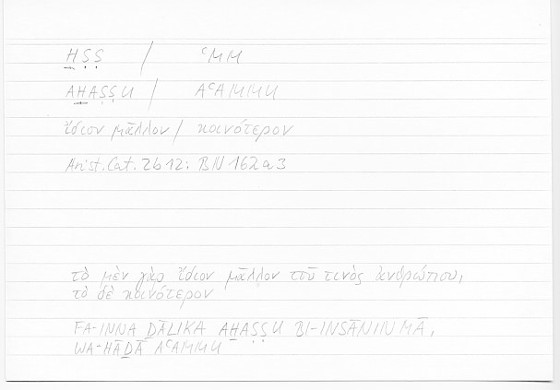 ḪṢṢ / ʿMM
AḪAṢṢU / AʿAMMU
ἴδιον μᾶλλον / κοινότερον
Arist. Cat. 2b12; BN 162a3
τὸ μὲν γὰρ ἴδιον μᾶλλον τοῦ τινὸς ἀνθρώπου,
τὸ δὲ κοινότερον
FA-INNA ḎĀLIKA AḪAṢṢU BI-INSĀNIN MĀ,
WA-HĀḎĀ AʿAMMU